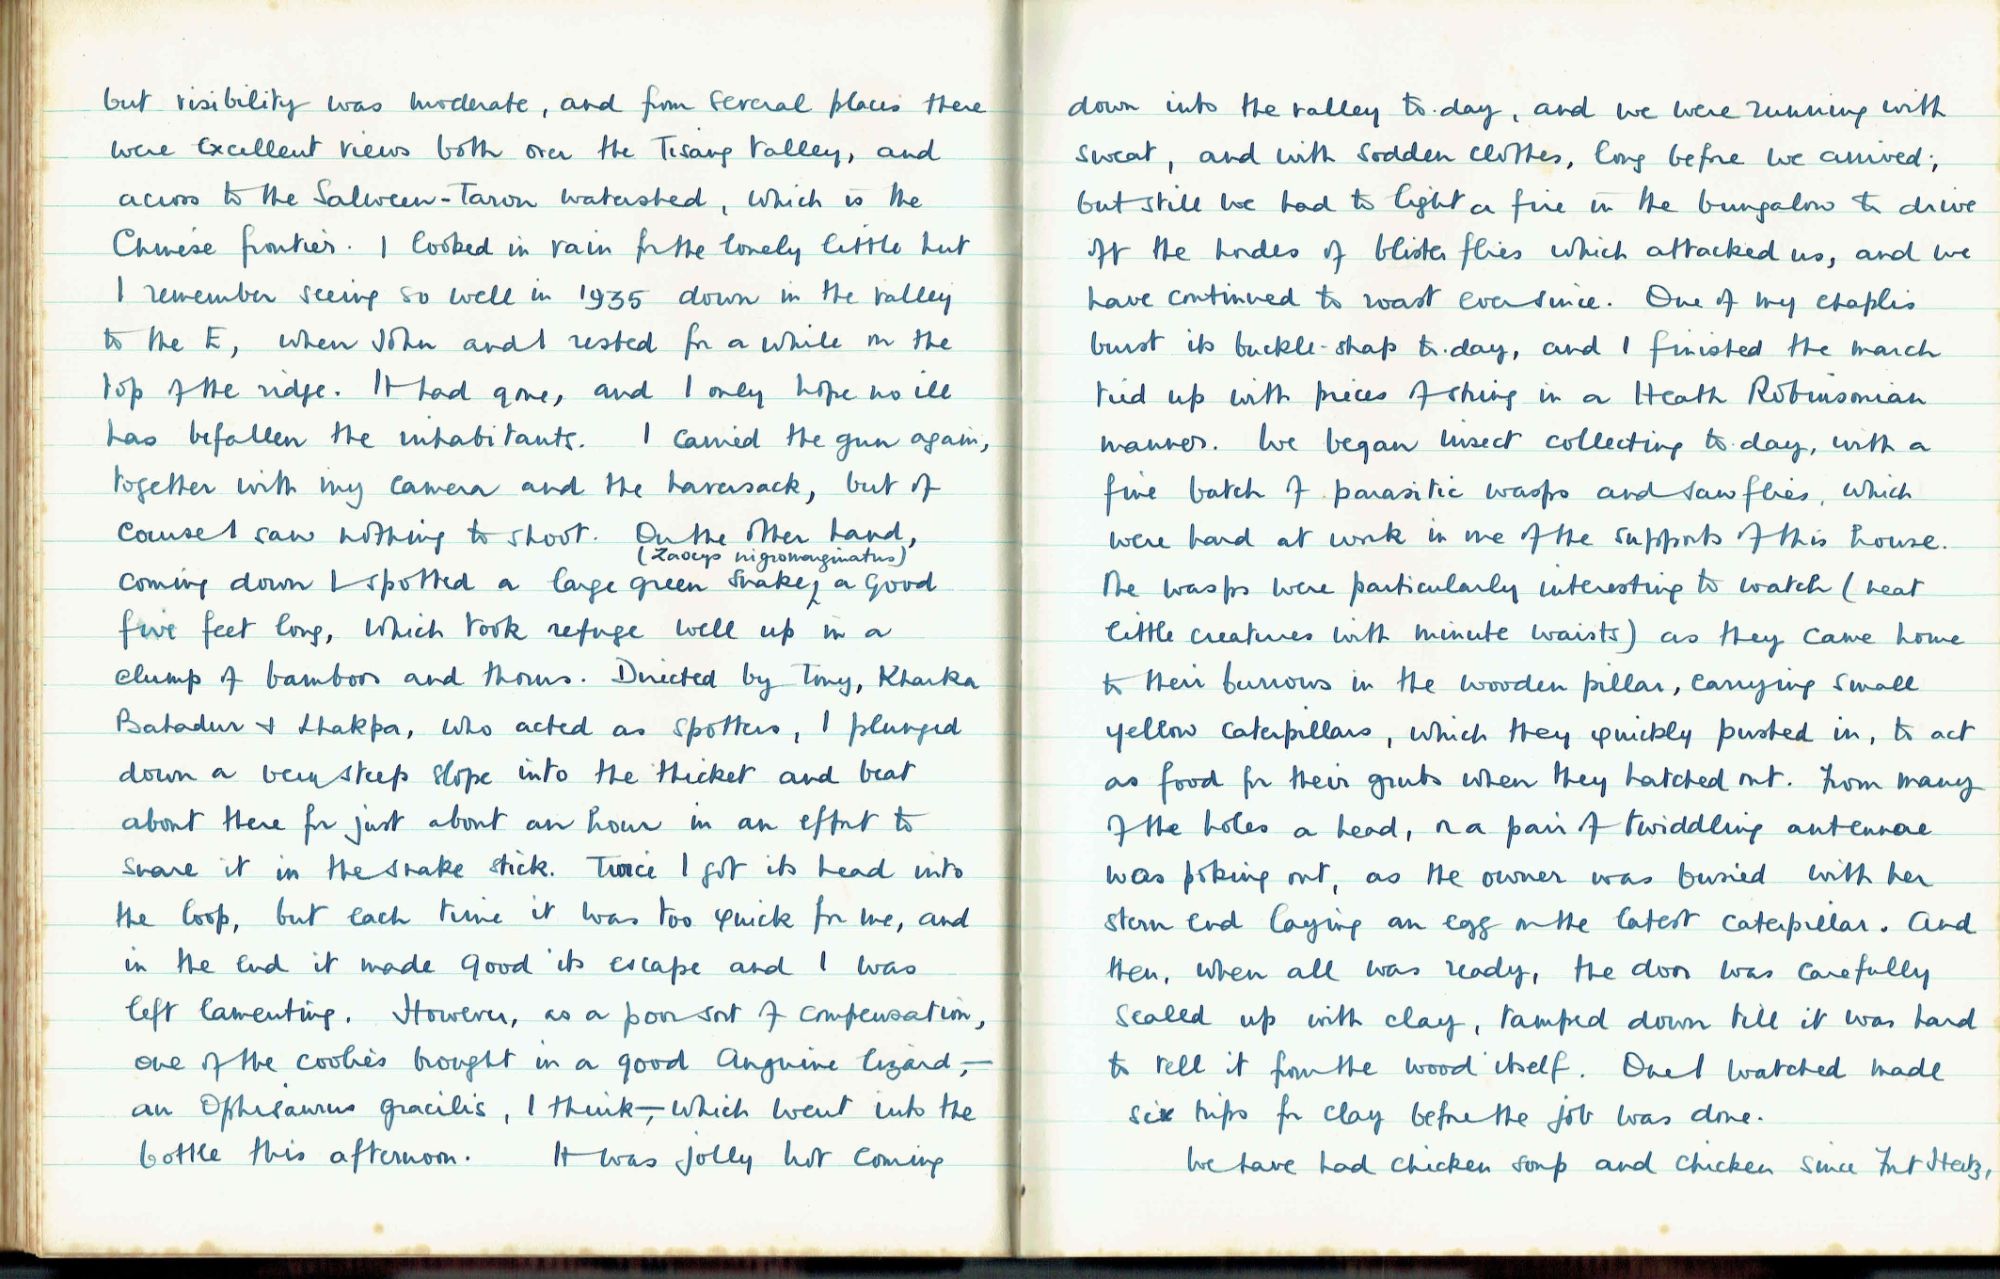 but visibility was moderate, and from several places there
were excellent views both over the Tisang Valley, and
across to the Salween-Taron watershed, which is the
Chinese frontier. I looked in vain for the lonely little hut
I remember seeing so well in 1935 down in the valley
to the E, when John and I rested for a while on the
top of the ridge. It had gone, and I only hope no ill
has befallen the inhabitants. I carried the gun again,
together with my camera and the haversack, but of
course I saw nothing to shoot. On the other hand,
(Zaocys nigromarginatus)
coming down I spotted a large green snake, a good
five feet long, which took refuge well up in a
clump of bamboos and thorns. Directed by Tony, Kharka
Bahadur & Lhakpa, who acted as spotters, I plunged
down a very steep slope into the thicket and beat
about there for just about an hour in an effort to
snare it in the snake stick. Twice I got its head into
the loop, but each time it was too quick for me, and
in the end it made good its escape and I was
left lamenting. However, as a poor sort of compensation,
one of the coolies brought in a good Anguine lizard,—
an Ophisaurus gracilis, I think—, which went into the
bottle this afternoon. It was jolly hot coming
down into the valley to-day, and we were running with
sweat, and with sodden clothes, long before we arrived;
but still we had to light a fire in the bungalow to drive
off the hordes of blister flies which attacked us, and we
have continued to roast ever since. One of my chaplis
burst its buckle-strap to-day, and I finished the march
tied up with pieces of string in a Heath Robinsonian
manner. We began insect collecting to-day, with a
fine batch of parasitic wasps and sawflies, which
were hard at work in one of the supports of this house.
The wasps were particularly interesting to watch (neat
little creatures with minute waists) as they came home
to their burrows in the wooden pillar, carrying small
yellow caterpillars, which they quickly pushed in, to act
as food for their grubs when they hatched out. From many
of the holes a head, or a pair of twiddling antennae
was poking out, as the owner was busied with her
stern end laying an egg on the latest caterpillar. And
then, when all was ready, the door was carefully
sealed up with clay, tamped down till it was hard
to tell it from the wood itself. One I watched made
six trips for clay before the job was done.
We have had chicken soup and chicken since Fort Hertz,